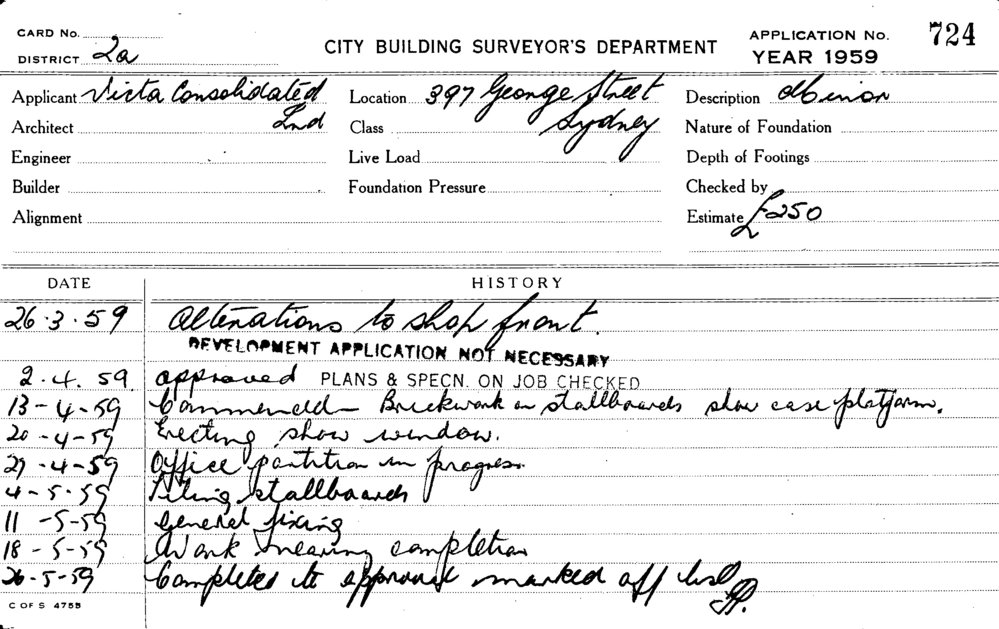 CARD No.
DISTRICT 2a
CITY BUILDING SURVEYOR'S DEPARTMENT
APPLICATION No. 724
YEAR 1959
Applicant Victa Consolidated
Ind
Architect
Engineer
Builder
Alignment
Location 397 George Street
Sydney
Class
Live Load
Foundation Pressure
Description Minor
Nature of Foundation
Depth of Footings
Checked by
Estimate £250
DATE HISTORY
26.3.59 Alterations to shop front.
DEVELOPMENT APPLICATION NOT NECESSARY
2.4.59. approved PLANS & SPECN. ON JOB CHECKED
13-4-59 Commenced Brickwork on stallboards show case platform.
20-4-59 Erecting show window.
27-4-59 Office partition in progress.
4-5-59 Tiling stallboards
11-5-59 General fixing
18-5-59 Work nearing completion
26-5-59 Completed to approval marked off list
C OF S 4755